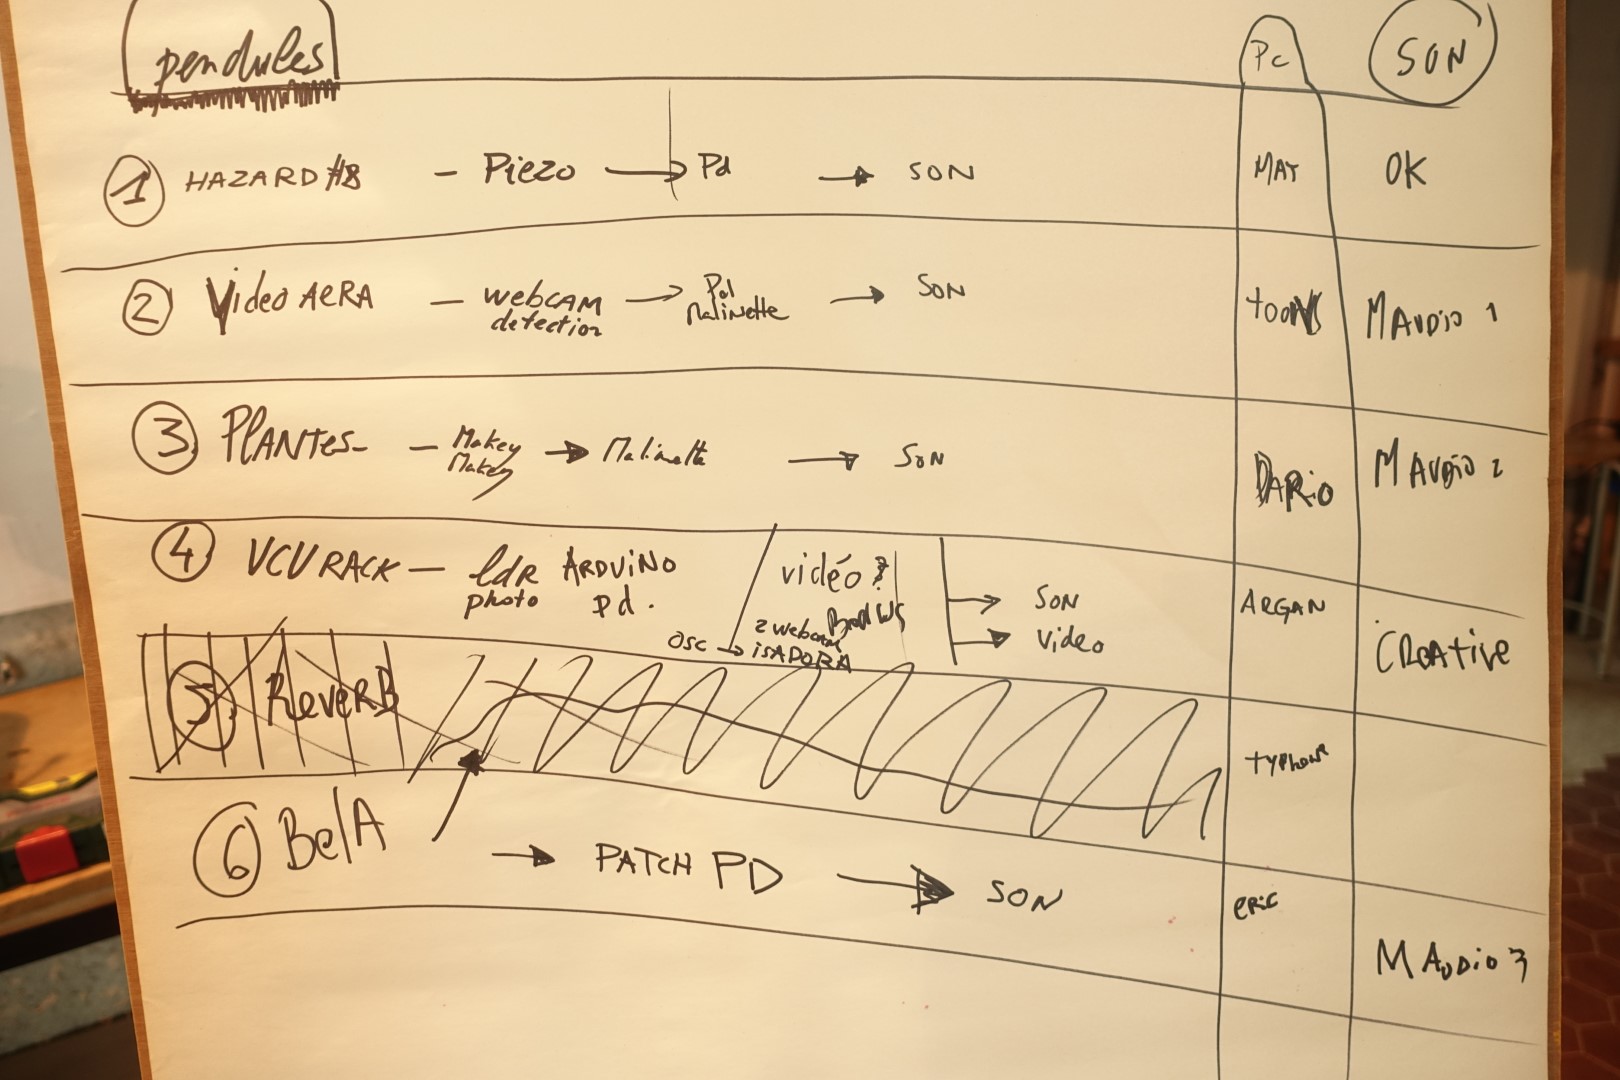 pendules
Pc
SON
1 HAZARD #8 - Piezo → Pd → SON MAT OK
2 Video AERA - webcam detection → Pd Malinette → SON toons MAUDIO 1
3 PLANTES - Makey Makey → Malinette → SON DARIO MAUDIO 2
4 VCV RACK - ldr ARDUiNO vidéo ? → SON ARGAN CReative
photo pd. → Video
osc → 2 webcam
isADORA
5 ReverB typhon
6 BelA → PATCH PD → SON eric MAUDIO 3